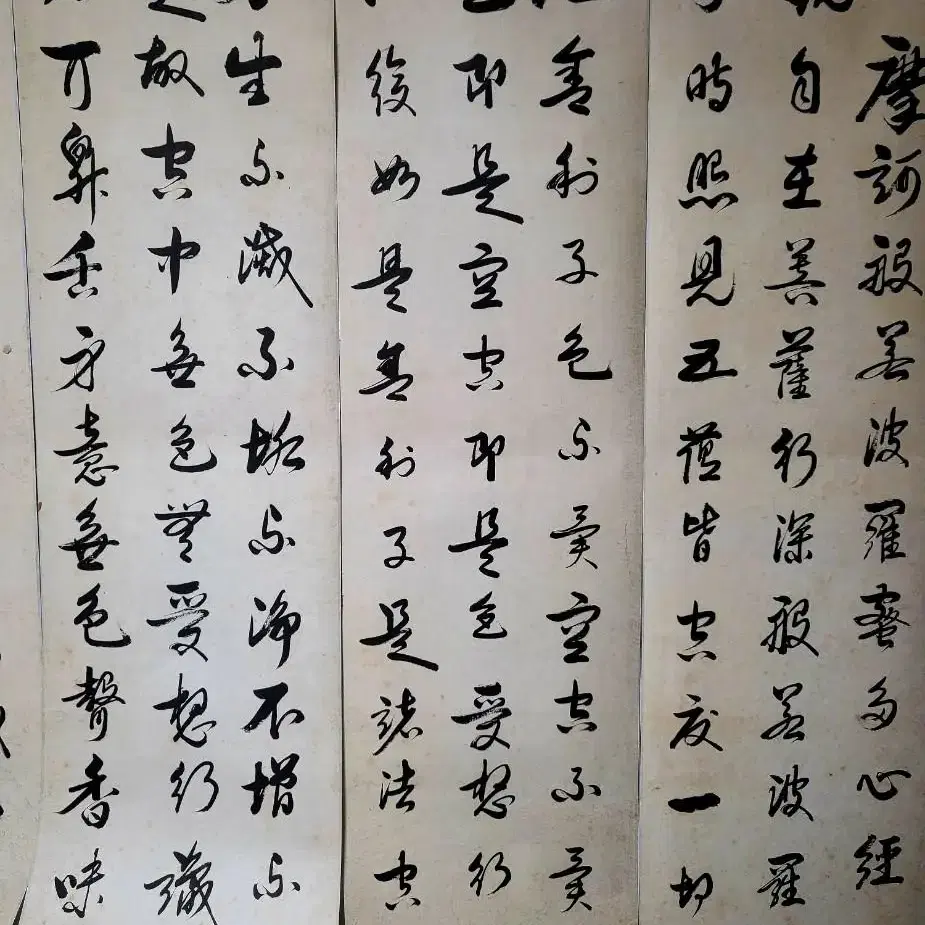 摩訶般若波羅蜜多心經
自在菩薩行深般若波羅
時照見五蘊皆空度一切
舍利子色不異空空不異
即是空空即是色受想行
復如是舍利子是諸法空
生不滅不垢不淨不增不
故空中無色無受想行識
耳鼻舌身意無色聲香味